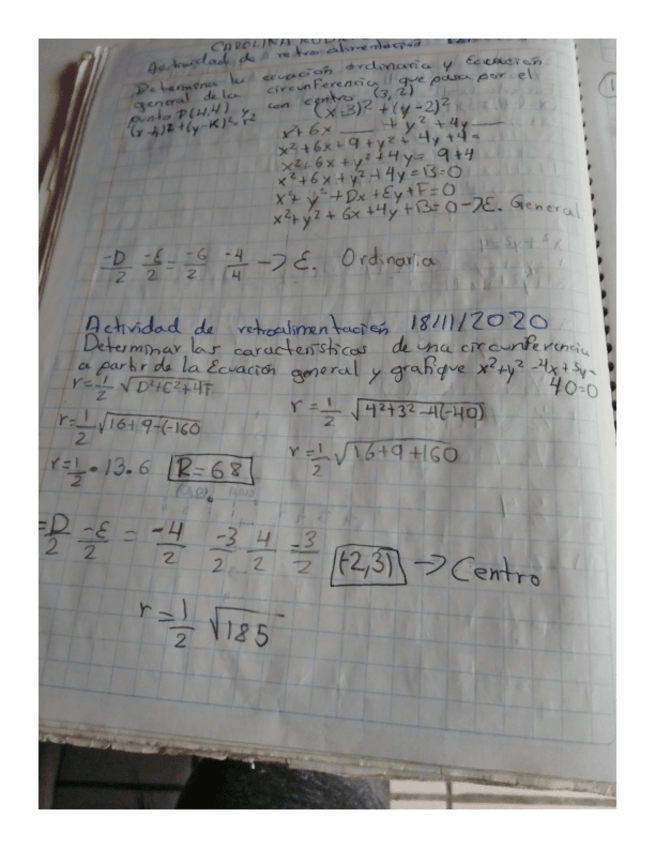 CAROLINA
Actividad de retroalimentación
Determina la ecuación ordinaria y Ecuación
general de la circunferencia que pasa por el
punto P(4,4) y con centro (3,2)
(x-h)²+(y-k)²=r² (x-3)²+(y-2)²
x²+6x ___ + y²+4y ___
x²+6x+9+y²+4y+4=
x²+6x+y²+4y= 9+4
x²+6x+y²+4y=13=0
x²+y²+Dx+Ey+F=0
x²+y²+6x+4y+13=0->E. General
-D/2 -E/2 = -6/2 -4/4 -> E. Ordinaria
Actividad de retroalimentación 18/11/2020
Determinar las características de una circunferencia
a partir de la Ecuación general y grafique x²+y²-4x+3y-
40=0
r=1/2 √D²+C²+4F
r=1/2 √4²+3²-4(-40)
r=1/2 √16+9-(-160
r=1/2 √16+9+160
r=1/2 • 13.6 R=68
=D/2 -E/2 = -4/2 -3/2 4/2 -3/2 (-2,3) -> Centro
r=1/2 √185